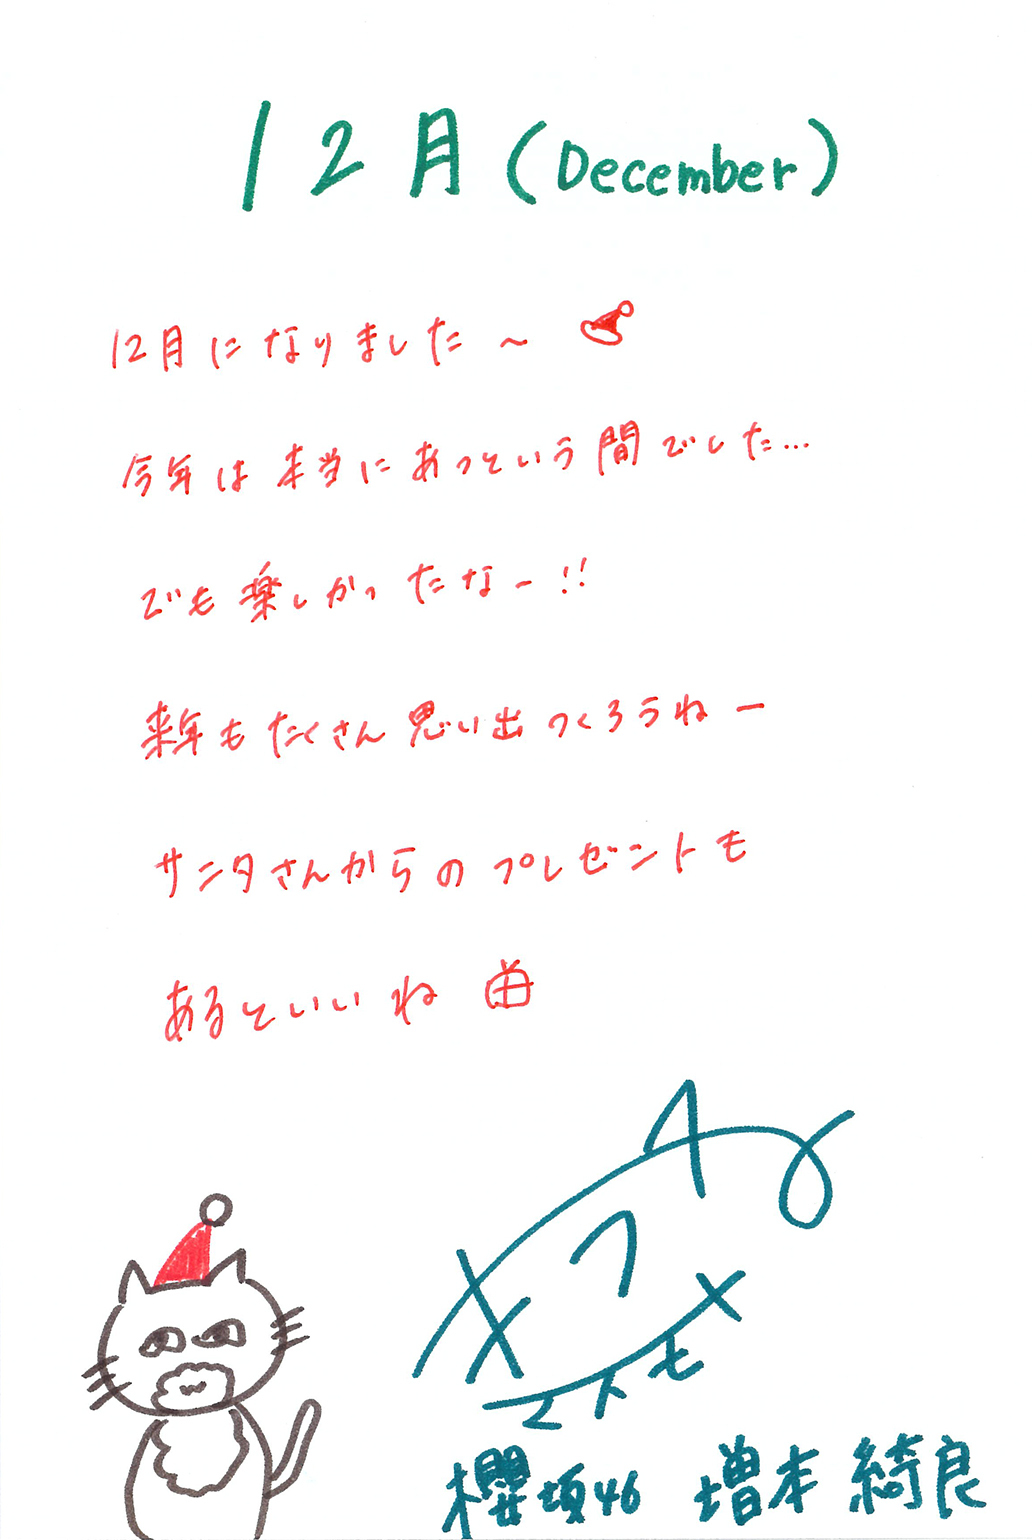 12月(December)
12月になりました～
今年は本当にあっという間でした...
でも楽しかったなー!!
来年もたくさん思い出つくろうねー
サンタさんからのプレゼントも
あるといいね
櫻坂46 増本綺良